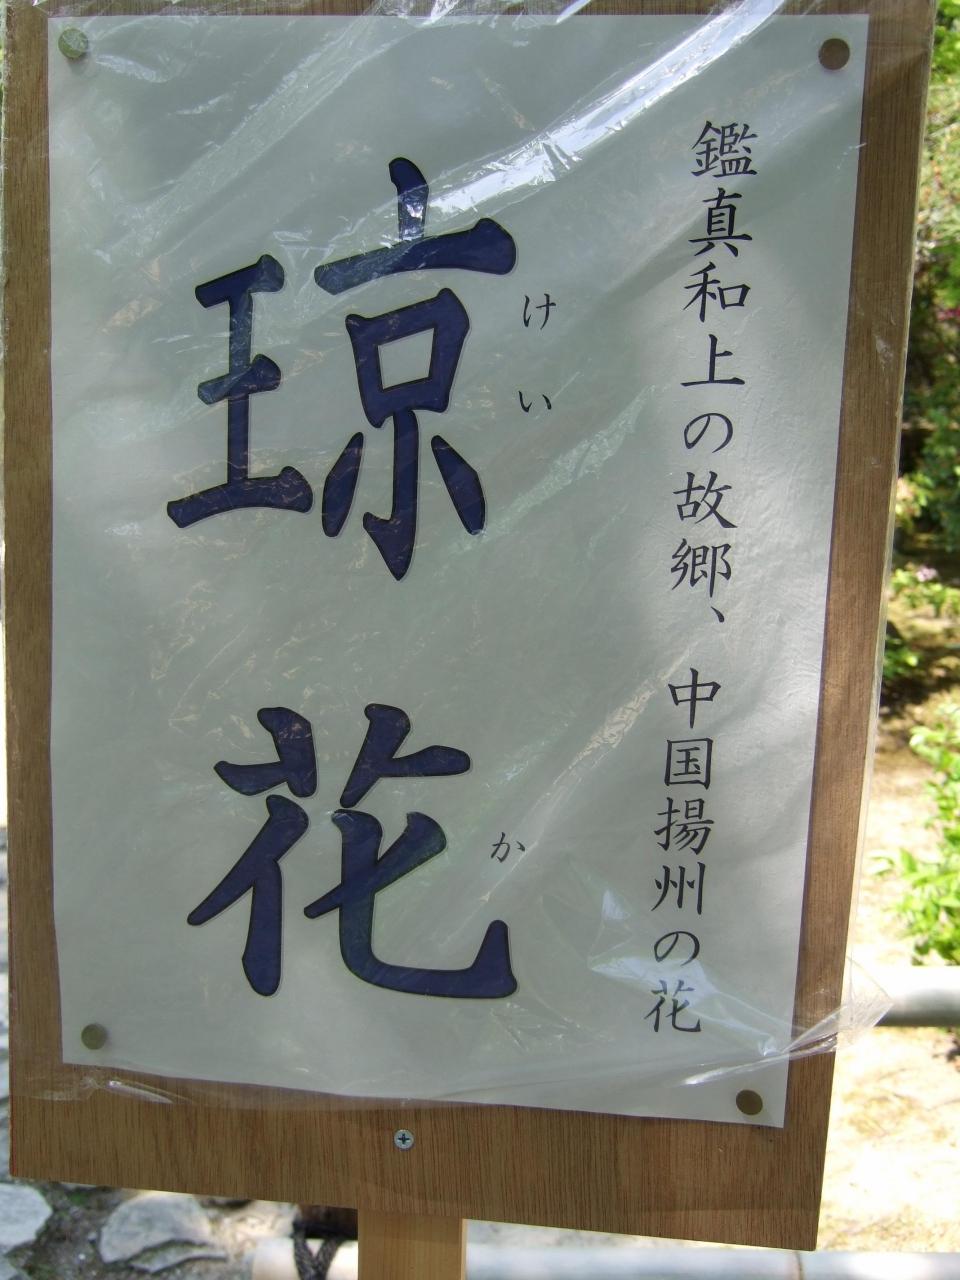 鑑真和上の故郷、中国揚州の花
琼花
けいか